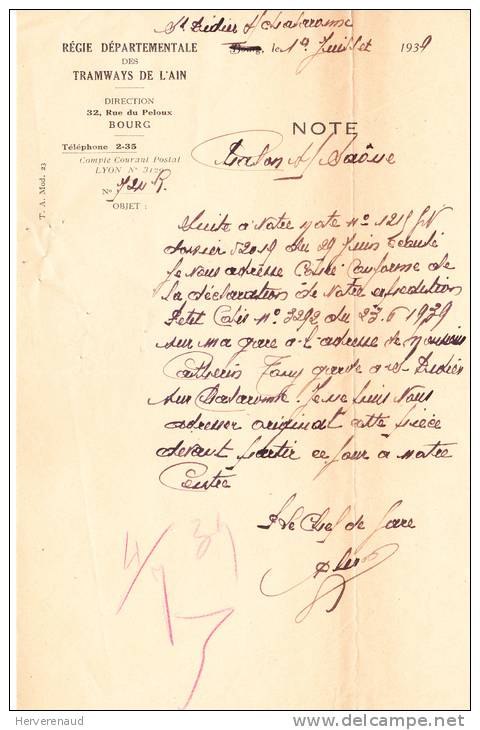 St Didier s/ Chalaronne
RÉGIE DÉPARTEMENTALE
DES
TRAMWAYS DE L'AIN
Bourg, le 1er Juillet 1939
DIRECTION
32, Rue du Peloux
BOURG
Téléphone 2-35
Compte Courant Postal
LYON N° 3129
N° 720 R
OBJET :
T. A. Mod. 23
NOTE
Chalon s/ Saône
Suite à Notre Note N° 1215
dossier 52019 du 29 Juin écoulé
Je Vous adresse Copie Conforme de
la déclaration de Votre expédition
Petit Colis N° 3292 du 23.6 1939
sur ma gare à l'adresse de Monsieur
Catherin garde à St Didier
sur Chalaronne. Je ne puis Vous
adresser original cette pièce
devant partir ce jour à Notre
Centre
P le Chef de Gare
4/7 39
Herverenaud
delcampe.net